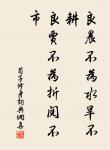 良農不為水旱不
耕
良賈不為折閱不
市
荀子修身詞典網集